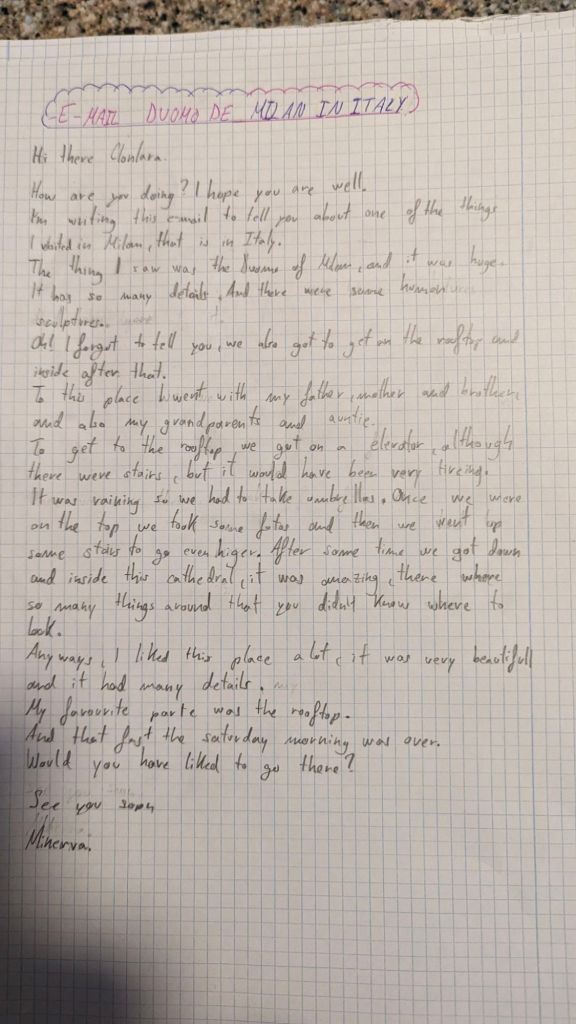 E-MAIL DUOMO DE MILAN IN ITALY
Hi there Clonlara.
How are you doing? I hope you are well.
I'm writing this e-mail to tell you about one of the things
I visited in Milan, that is in Italy.
The thing I saw was the Duomo of Milan, and it was huge.
It has so many details. And there were some human
sculptures.
Oh! I forgot to tell you, we also got to get on the rooftop and
inside after that.
To this place I went with my father, mother and brother,
and also my grandparents and auntie.
To get to the rooftop we got on a elevator, although
there were stairs, but it would have been very tireing.
It was raining so we had to take umbrellas. Once we were
on the top we took some fotos and then we went up
some stairs to go even higer. After some time we got down
and inside this cathedral, it was amazing, there where
so many things around that you didn't know where to
look.
Any ways, I liked this place a lot, it was very beautifull
and it had many details.
My favourite parte was the rooftop.
And that fast the saturday morning was over.
Would you have liked to go there?
See you soon
Minerva.